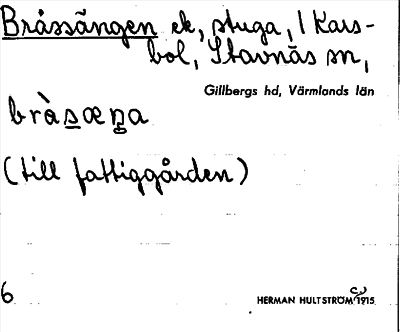 Bråssängen ek, stuga, / Kars-
bol, Stavnäs sn,
Gillbergs hd, Värmlands län
bràsæŋa
(till fattiggården)
6
HERMAN HULTSTRÖM 1915